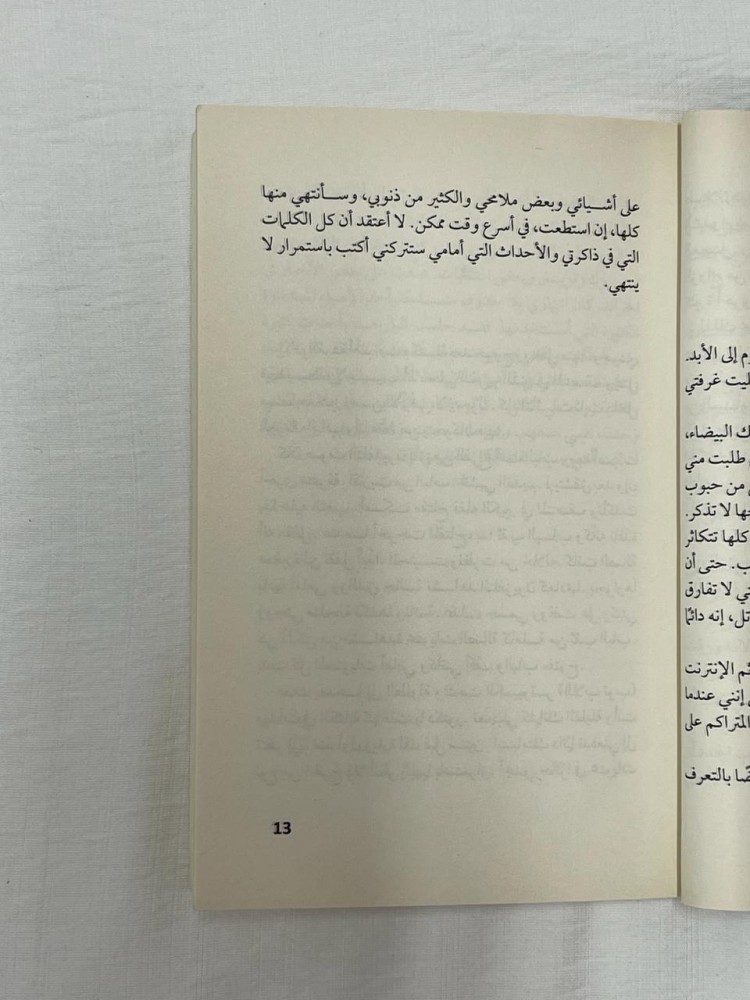 إلى الأبد.
غرفتي
البيضاء،
طلبت مني
من حبوب
لا تذكر.
كلها تتكاثر
حتى أن
لا تفارق
إنه دائمًا
الإنترنت
إنني عندما
المتراكم على
بالتعرف
على أشيائي وبعض ملامحي والكثير من ذنوبي، وسأنتهي منها
كلها، إن استطعت، في أسرع وقت ممكن. لا أعتقد أن كل الكلمات
التي في ذاكرتي والأحداث التي أمامي ستتركني أكتب باستمرار لا
ينتهي.
13